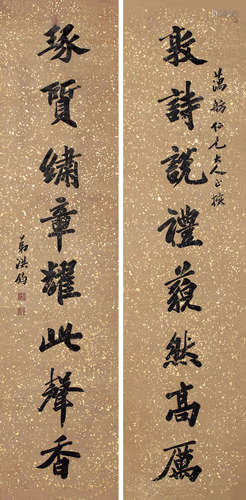 敦詩說禮藐然高厲
萬舫仁兄大人正㨿
琢質繡章耀此聲香
弟洪鈞